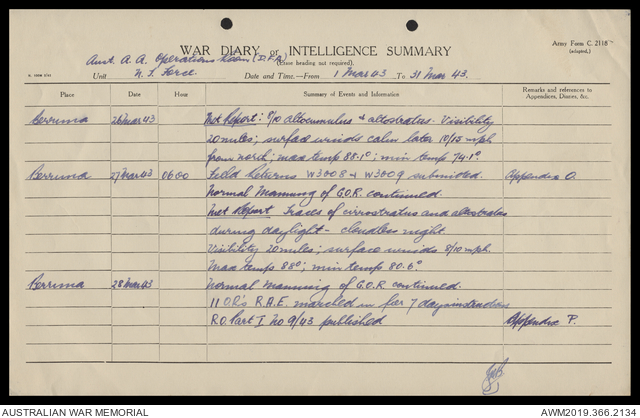 Army Form C. 2118
(adapted.)
WAR DIARY or INTELLIGENCE SUMMARY
(Erase heading not required).
Aust. A. A. Operations Room (D.F.A)
Unit N. T. Force. Date and Time.—From 1 Mar 43 To 31 Mar 43.
Place Date Hour Summary of Events and Information Remarks and references to Appendices, Diaries, &c.
Berrima 26 Mar 43 Met Report: 8/10 altocumulus & altostratus. Visibility
20 miles; surface winds calm later 10/15 mph
from north; max temp 88.1°; min temp 74.1°.
Berrima 27 Mar 43 0600 Field Returns W3008 & W3009 submitted. Appendix O.
Normal Manning of G.O.R. continued.
Met Report Traces of cirrostratus and altostratus
during daylight - cloudless night.
Visibility 20 miles; surface winds 8/10 mph.
Max temps 88°; min temp 80.6°
Berrima 28 Mar 43 Normal Manning of G.O.R. continued.
11 OR's R.A.E. marched in for 7 days instruction
R.O. Part I No 9/43 published Appendix P.
AUSTRALIAN WAR MEMORIAL AWM2019.366.2134